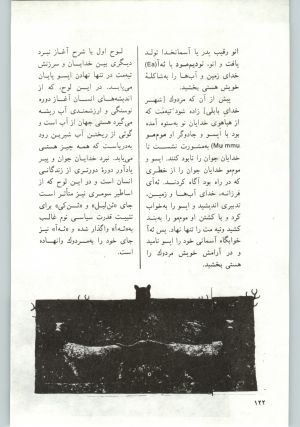 انو رقیب بدر یا آسمانخدا تولد
یافت و انو، نودیم‌مود یا ئه‌آ (Ea)
خدای زمین و آب‌ها را به‌شاکلهٔ
خویش هستی بخشید.
پیش از آن که مردوک [شهر
خدای بابلی] زاده شود تیه‌مت که
از هیاهوی خدایان نو به‌ستوه آمده
بود با اپسو و جادوگر او موم‌مو
(Mu mmu) به‌مشورت نشست تا
خدایان جوان را نابود کنند. اپسو و
موم‌مو خدایان جوان را از خطری
که در راه بود آگاه کردند. ئه‌آی
فرزانه، خدای آب‌ها و زمین،
تدبیری اندیشید و اپسو را به‌خواب
کرد و با کشتن او موم‌مو را به‌بند
کشید و تیه مت را تنها نهاد. پس ئه‌آ
خوابگاه آسمانی خود را اپسو نامید
و در آرامش خویش مردوک را
هستی بخشید.
لوح اول با شرح آغاز نبرد
دیگری بین خدایان و سرزنش
تیه‌مت در تنها نهادن اپسو پایان
می‌یابد. در این لوح، که از
اندیشه‌های انسان آغاز دوره
نوسنگی و ارزشمندی آب ریشه
می‌گیرد هستی جهان از آب است و
گوئی از ریختن آب شیرین رود
به‌دریاست که همه چیز هستی
می‌یابد. نبرد خدایان جوان و پیر
یادآور دورهٔ دورتری از زندگانی
انسان است و در این لوح که از
اساطیر سومری نیز متأثر است
جای «ئن‌لیل» و «ئن‌کی» برای
تثبیت قدرت سیاسی نوم غالب
به‌«ئه‌آ» واگذار شده و «ئه‌آ» نیز
جای خود را به‌مردوک وانهاده
است.
۱۲۲